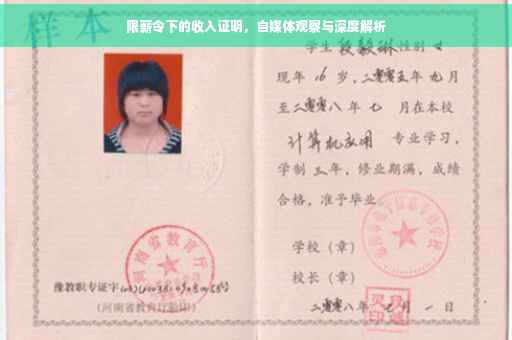 限薪令下的收入证明，自媒体观察与深度解析
样本
学生段毅琳性别女
现年16岁，二零零五年九月
至二零零八年七月在本校
计算机应用 专业学习，
学制三年，修业期满，成绩
合格，准予毕业。
学校（章）
校长（章）
二零零八年七月一日
河南省教育厅
豫教职专证字
（河南省教育厅验印）